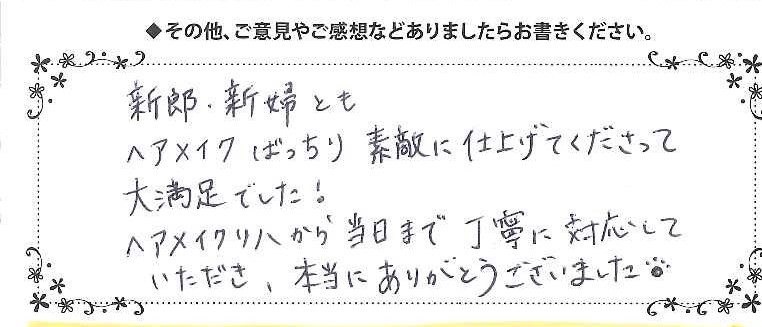 ◆その他、ご意見やご感想などありましたらお書きください。
新郎・新婦とも
ヘアメイクばっちり素敵に仕上げてくださって
大満足でした!
ヘアメイクリハから当日まで丁寧に対応して
いただき、本当にありがとうございました